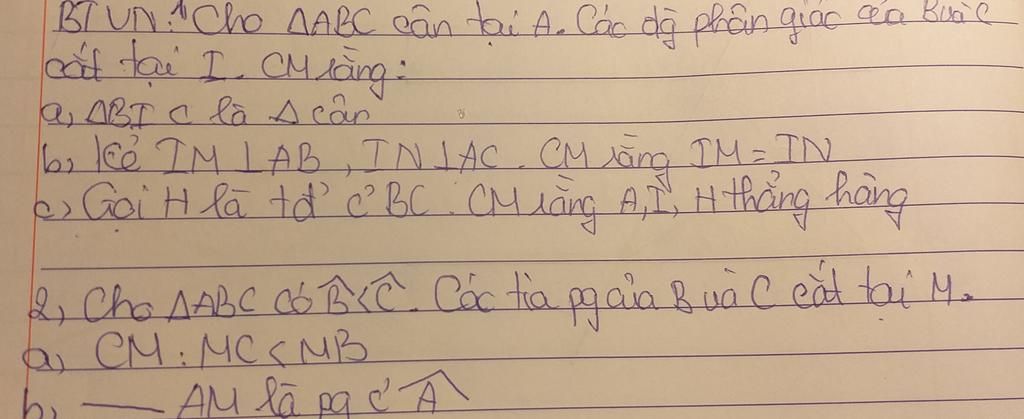 BTVN: 1 Cho ΔABC cân tại A. Các dg̃ phân giác của B và C
cắt tại I. CM rằng:
a, ΔBIC là Δ cân
b, Kẻ IM⊥AB, IN⊥AC. CM rằng IM=IN
c, Gọi H là tđ' c' BC. CM rằng A, I, H thẳng hàng
2, Cho ΔABC có B̂<Ĉ. Các tia pg của B và C cắt tại M.
a, CM: MC<MB
b, — AM là pg c' Â